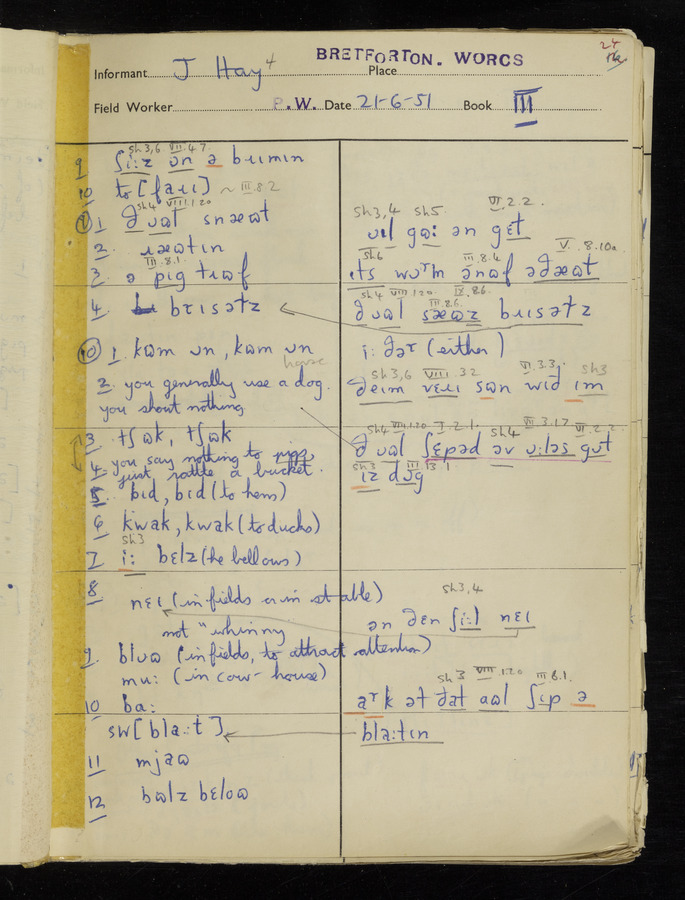 24
BRETFORTON. WORCS
Informant J Hay 4 Place
Field Worker P.W. Date 21-6-51 Book III
sh3,6 VII.4.7.
9 ʃi:z ən ə bɹɪmɪn
10 to [faɹɪ] ~ III.8.2
sh4 VIII.1.20
9 1 ðʊɑt snæət
2. ɹæətɪn
III.8.1.
3. ə pɪg tɹɷf
4. bɹɪsətz
10 1. kɷm ʊn, kɷm ʊn
house
2. you generally use a dog.
you shout nothing
3. tʃɷk, tʃɷk
4. you say nothing to pigs
just rattle a bucket.
5. bid, bid (to hens)
6 kwak, kwak (to ducks)
sh3
7 i: bɛlz (he bellows)
8
nɛɪ (in fields or in stable)
not "whinny
9. blʊɷ (in fields, to attract attention)
mu: (in cow-house)
10 ba:
sw [bla:t]
11 mjaɷ
12 bɷlz bɛlɷɷ
sh3,4 sh5. VI.2.2.
gɷ: ən gɛt
sh6 III.8.4 V.8.10a
ɪts wʊʳm ənɷf əðæət
sh4 VIII.1.20 IX.8.6.
III.8.6.
sæɷz bɹɪsətz
i: ðəʳ (either)
sh3,6 VIII.3.2 VI.3.3. sh3
ðeɪm vɛɹɪ sɷn wɪð ɪm
sh4 VIII.1.20 I.2.1. sh4 VII.3.17. VI.2.2.
ʃɛpəd əv gʊt
sh3 III.13.1
ɪz dʊg
sh3,4
ən ðɛn ʃi:l nɛɪ
sh3 VIII.1.20 III.6.1.
aʳk ət ðat ʃɪp ə
bla:tɪn